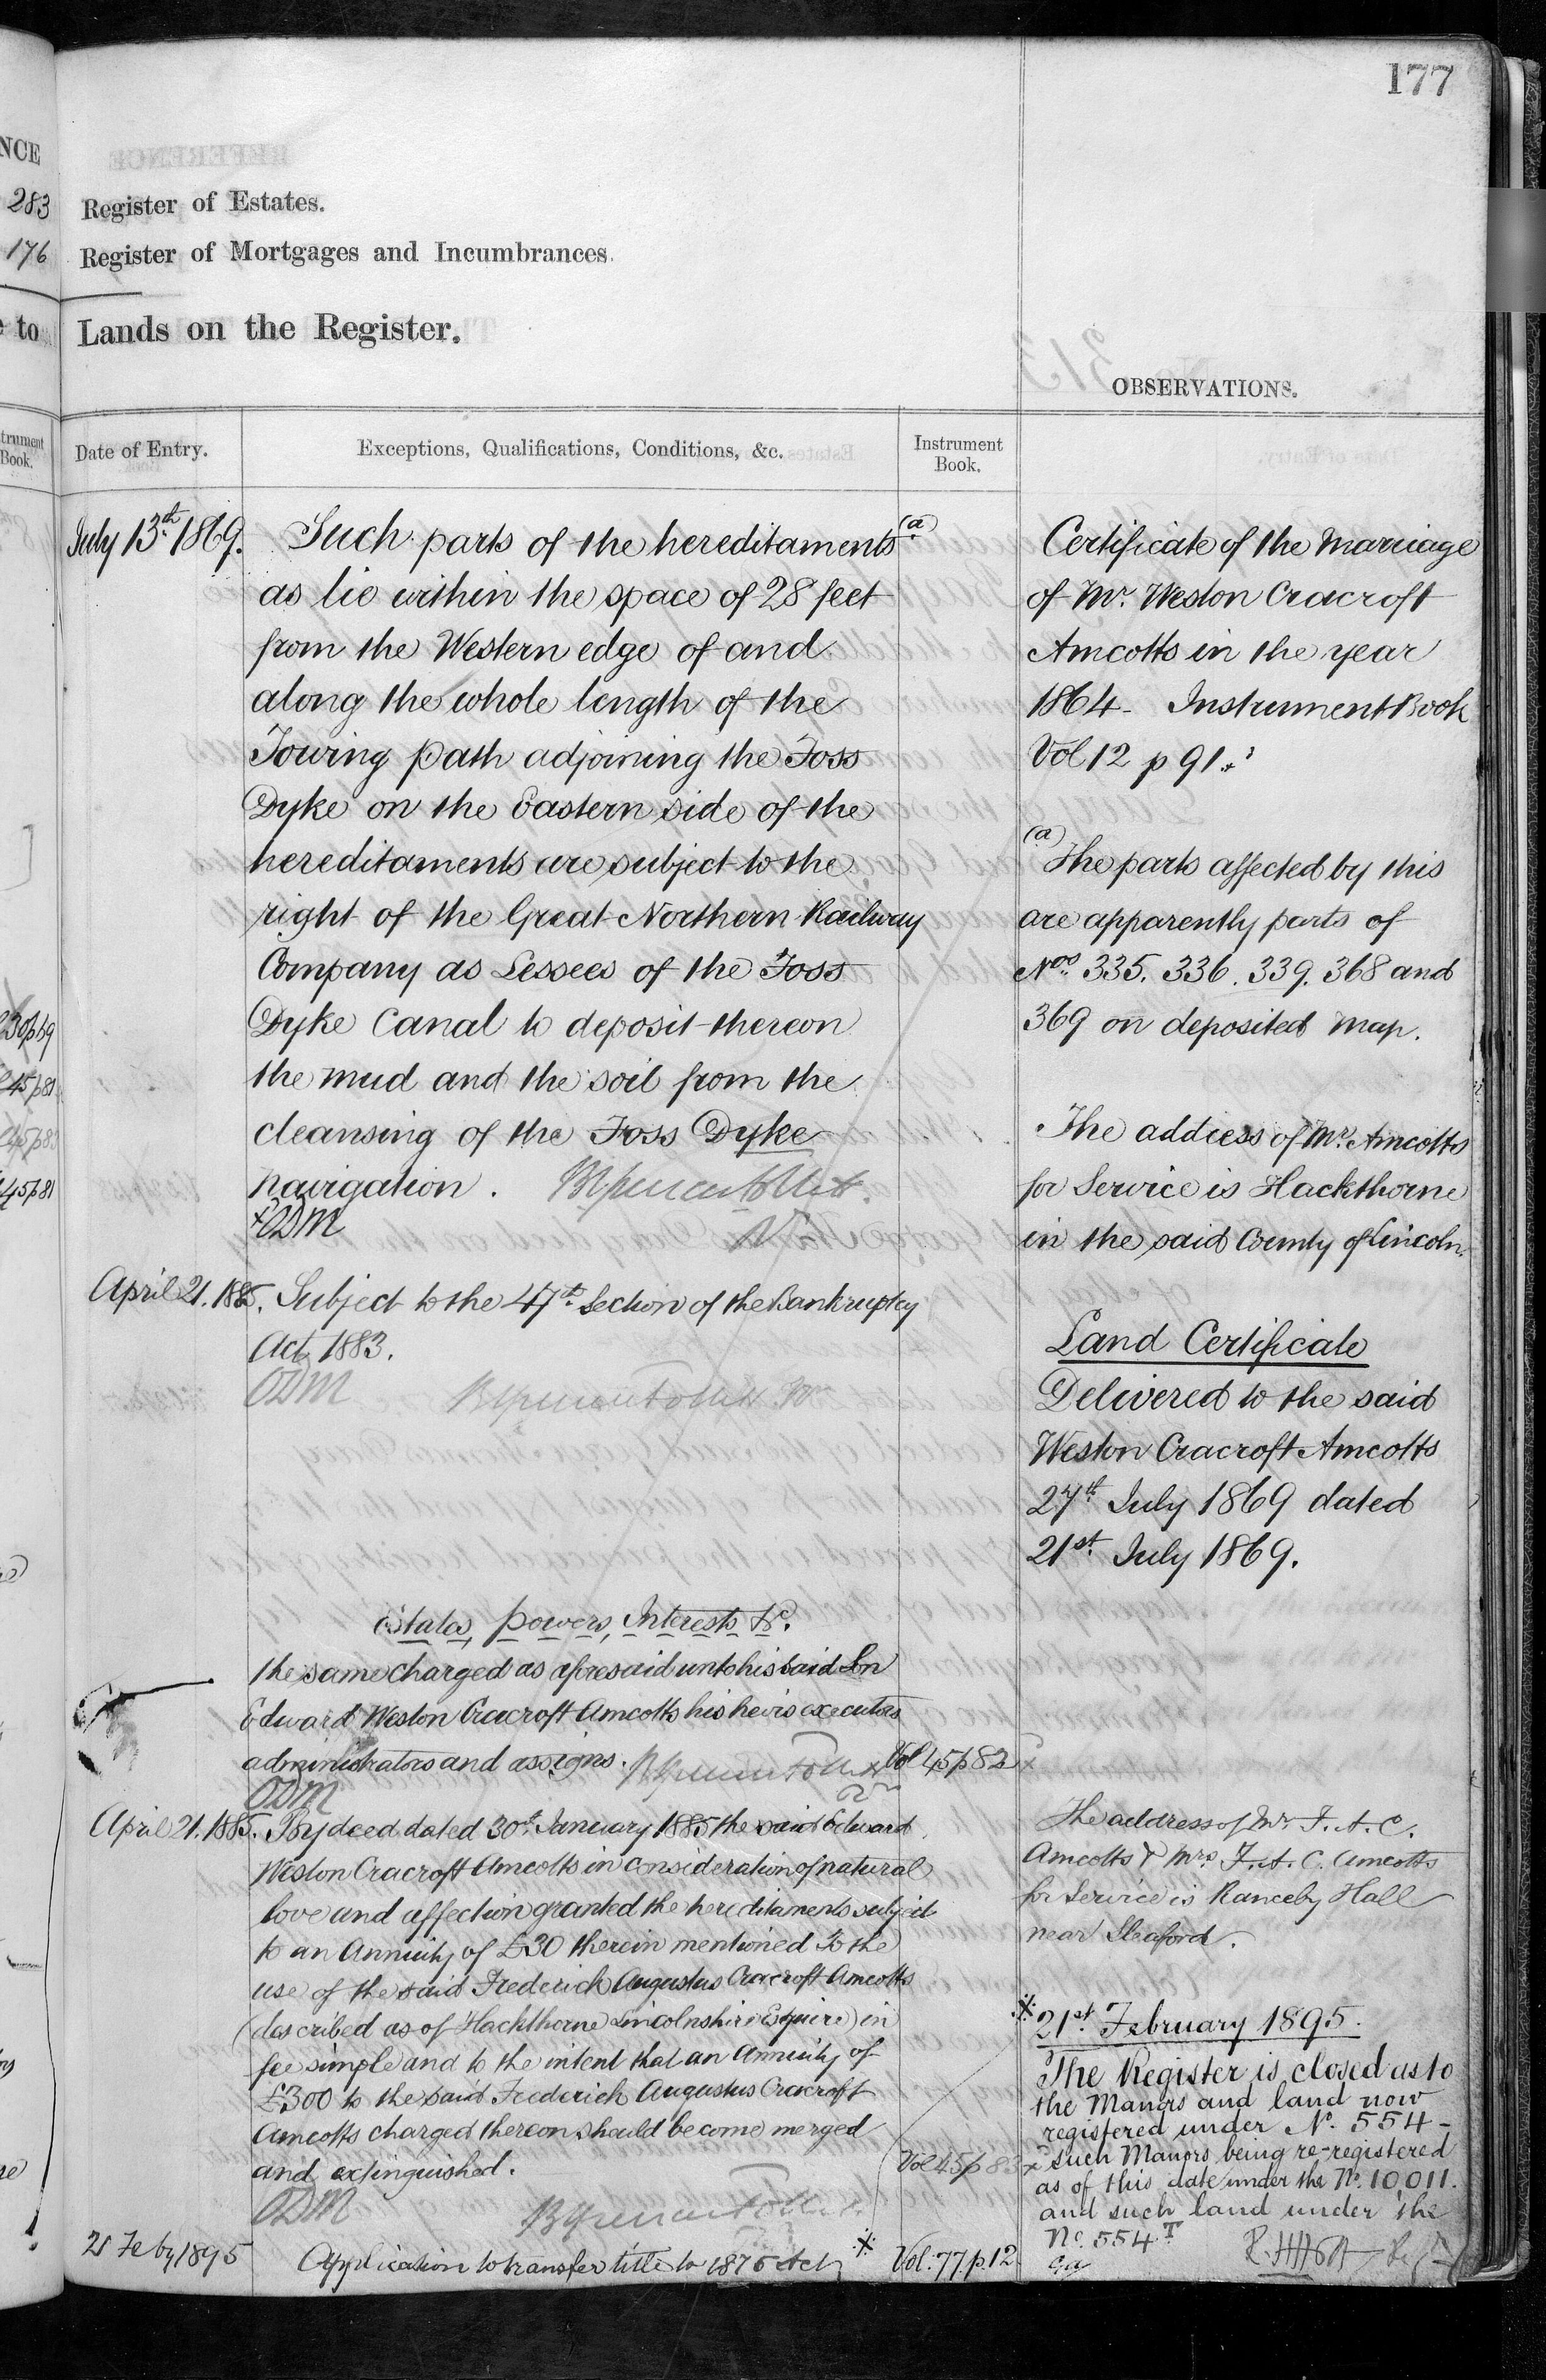 177
NCE
283
176
e to
trument
Book.
30p69
45p81
45p81
Register of Estates.
Register of Mortgages and Incumbrances.
Lands on the Register.
OBSERVATIONS.
Date of Entry.
Exceptions, Qualifications, Conditions, &c.
Instrument
Book.
July 13th 1869.
Such parts of the hereditaments (a)
as lie within the space of 28 feet
from the Western edge of and
along the whole length of the
Towing path adjoining the Foss
Dyke on the Eastern side of the
hereditaments are subject to the
right of the Great Northern Railway
Company as Lessees of the Foss
Dyke Canal to deposit thereon
the mud and the soil from the
cleansing of the Foss Dyke
navigation.
+ODM
April 21. 1885. Subject to the 47th Section of the Bankruptcy
Act 1883.
ODM
Estates, Powers, Interests &c.
the same charged as aforesaid unto his said Son
Edward Weston Cracroft Amcotts his heirs executors
administrators and assigns. Vol 45 p 82
ODM
April 21. 1885. By deed dated 30th January 1885 the said Edward
Weston Cracroft Amcotts in consideration of natural
love and affection granted the hereditaments subject
to an Annuity of £30 therein mentioned To the
use of the said Frederick Augustus Cracroft Amcotts
(described as of Hackthorne Lincolnshire Esquire) in
fee simple and to the intent that an Annuity of
£300 to the said Frederick Augustus Cracroft
Amcotts charged thereon should become merged
and extinguished. Vol 45 p 83
ODM
21 Feby 1895 Application to transfer title to 1875 Act Vol. 77. p. 12
Certificate of the Marriage
of Mr. Weston Cracroft
Amcotts in the year
1864 - Instrument Book
Vol 12 p 91.
(a) The parts affected by this
are apparently parts of
Nos. 335. 336. 339. 368 and
369 on deposited Map.
The address of Mr. Amcotts
for Service is Hackthorne
in the said County of Lincoln.
Land Certificate
Delivered to the said
Weston Cracroft Amcotts
27th July 1869 dated
21st July 1869.
The address of Mr. F. A. C.
Amcotts & Mrs F. A. C. Amcotts
for Service is Rauceby Hall
near Sleaford.
21st February 1895.
The Register is closed as to
the Manors and land now
registered under No. 554 -
such Manors being re-registered
as of this date under the No. 10,011.
and such land under the
No. 554 T